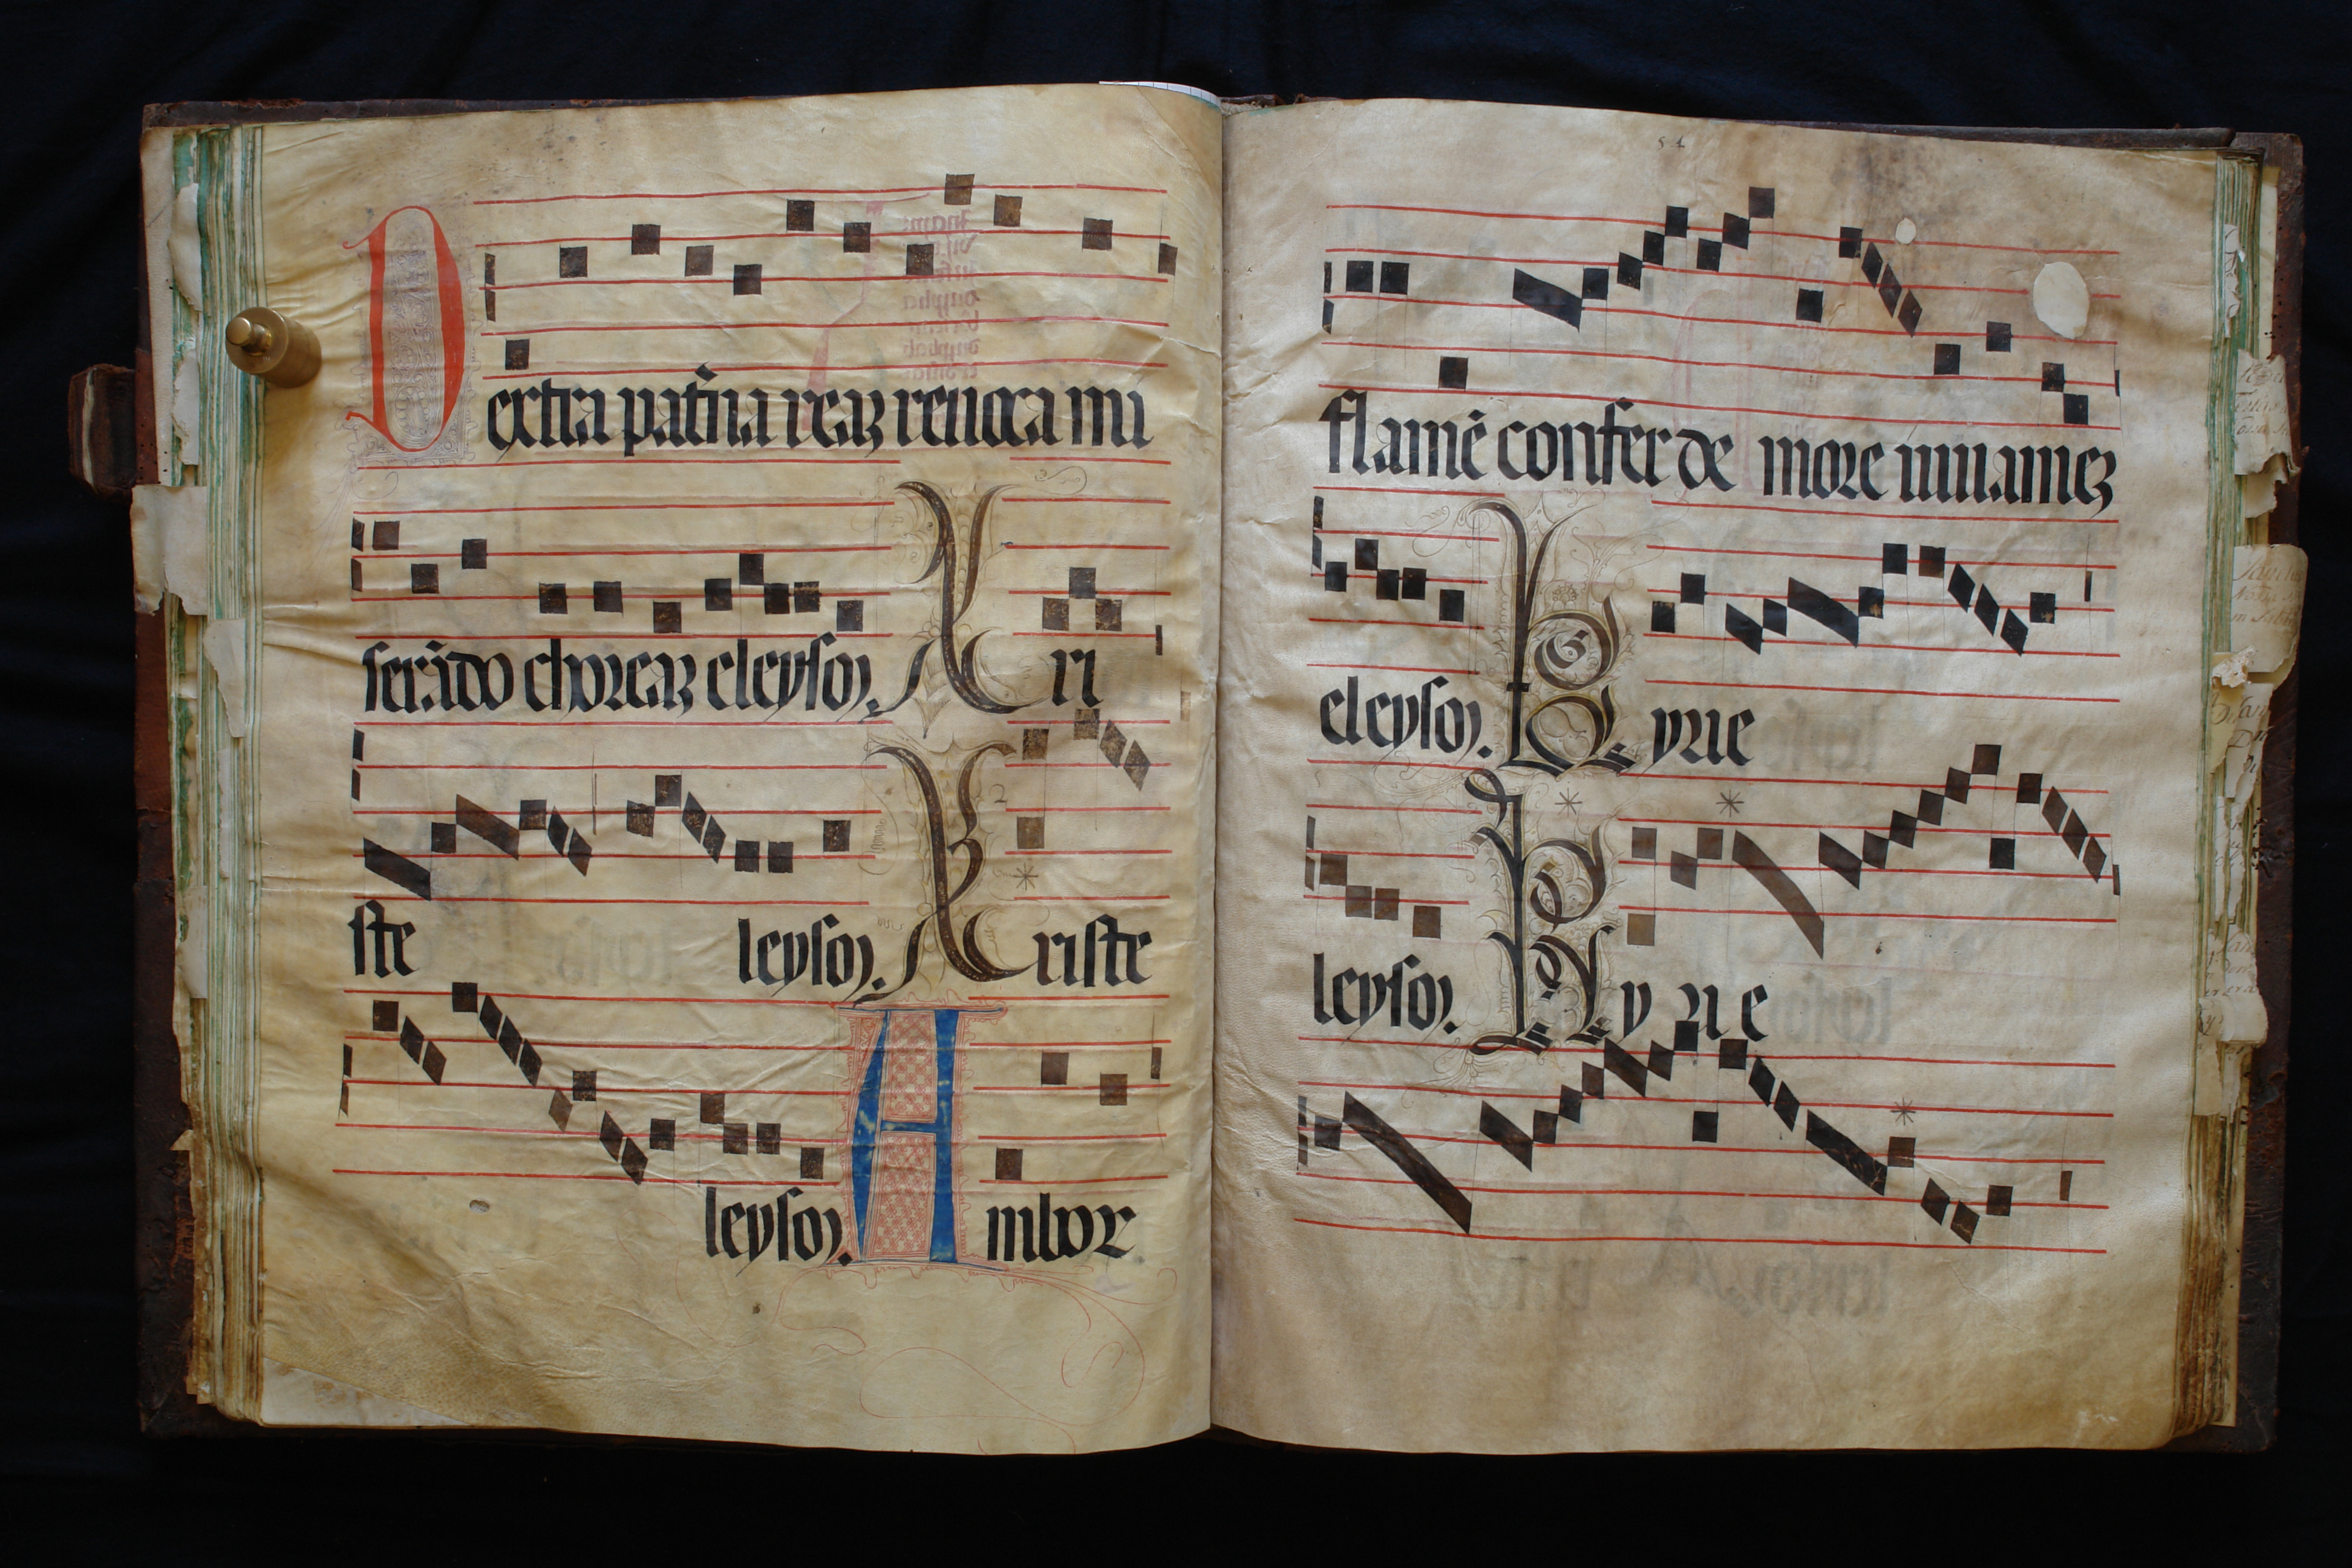 Dextra pat̃na reaꝫ reuoca mi
serãdo choreaꝫ eleyson. Xri
ste leyson. Xriste
leyson. Ambor
51
flamẽ confer de more iuuameꝫ
eleyson. Kyrie
leyson. Kyrie